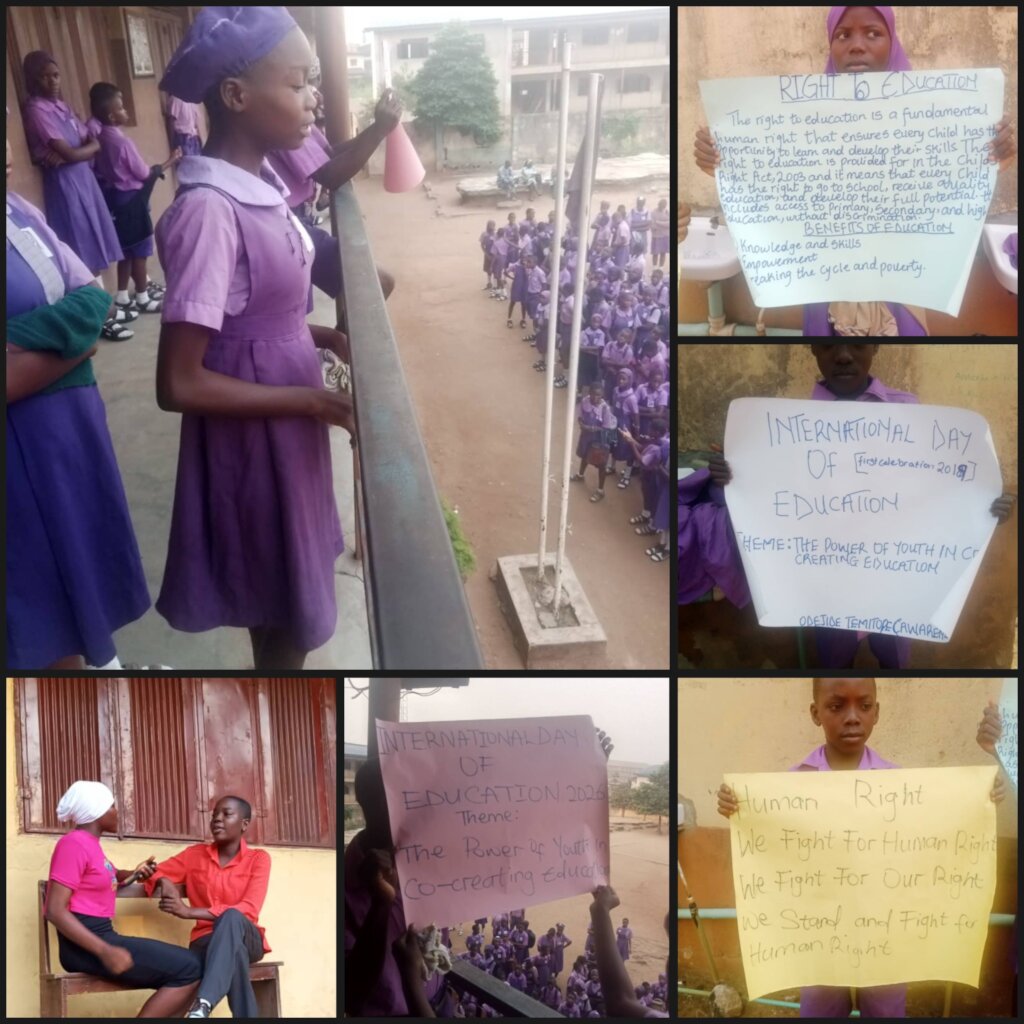 RIGHT TO EDUCATION
The right to education is a fundamental
human right that ensures every child has the
opportunity to learn and develop their skills The
right to education is provided for in the Child
Right Act, 2003 and it means that every Child
has the right to go to school, receive quality
education, and develop their full potential. It
includes access to primary, secondary, and high
education, without discrimination.
BENEFITS OF EDUCATION
Knowledge and skills
Empowerment
reaking the cycle and poverty.
INTERNATIONAL DAY
OF [first celebration 2019]
EDUCATION
THEME: THE POWER OF YOUTH IN Cr
CREATING EDUCATION
ODEJIDE TEMITOPE
INTERNATIONAL DAY
OF
EDUCATION 2026
Theme:
The Power of Youth in
Co-creating Education
Human Right
We Fight For Human Right
We Fight For Our Right
We Stand and Fight for
Human Right